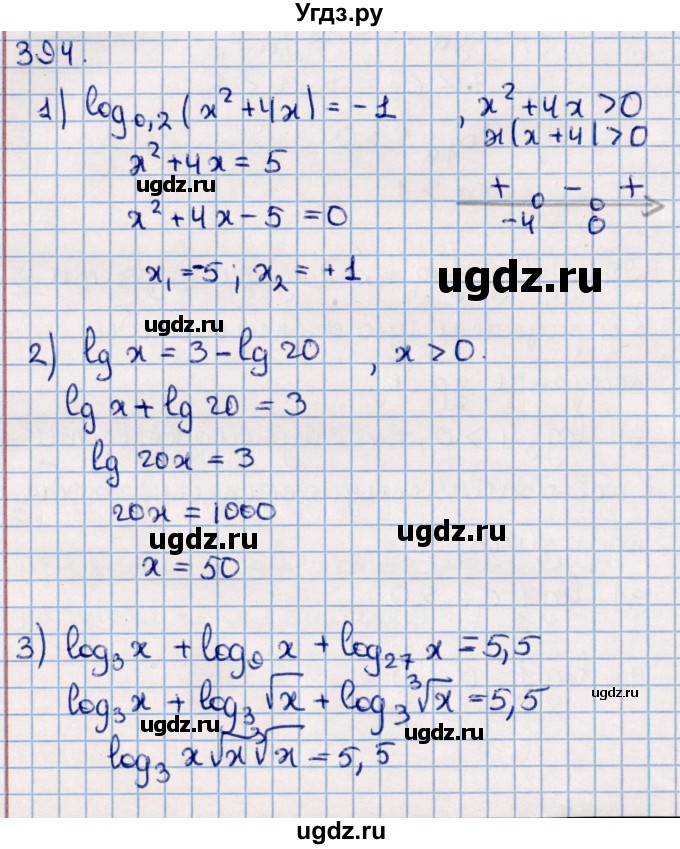 Угдз.ру
394.
1) log₀,₂(x² + 4x) = -1 , x² + 4x > 0
x(x + 4) > 0
x² + 4x = 5
ugdz.ru
+ - +
-4 0
x² + 4x - 5 = 0
ugdz.ru
x₁ = -5; x₂ = +1
ugdz.ru
2) lg x = 3 - lg 20 , x > 0.
lg x + lg 20 = 3
lg 20x = 3
20x = 1000
ugdz.ru ugdz.ru
x = 50
3) log₃x + log₉x + log₂₇x = 5,5
log₃x + log₃√x + log₃∛x = 5,5
ugdz.ru
ugdz.ru ugdz.ru
log₃ x√x∛x = 5,5
ugdz.ru